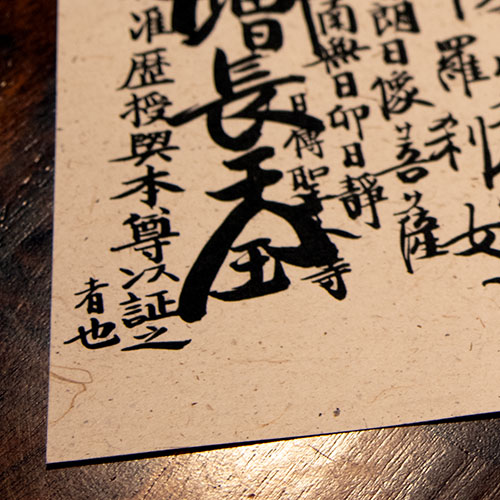 羅刹女
朗日像菩薩
南無日卯日靜
日傳聖人寺
增長天王
准歷授與本尊以証之
者也